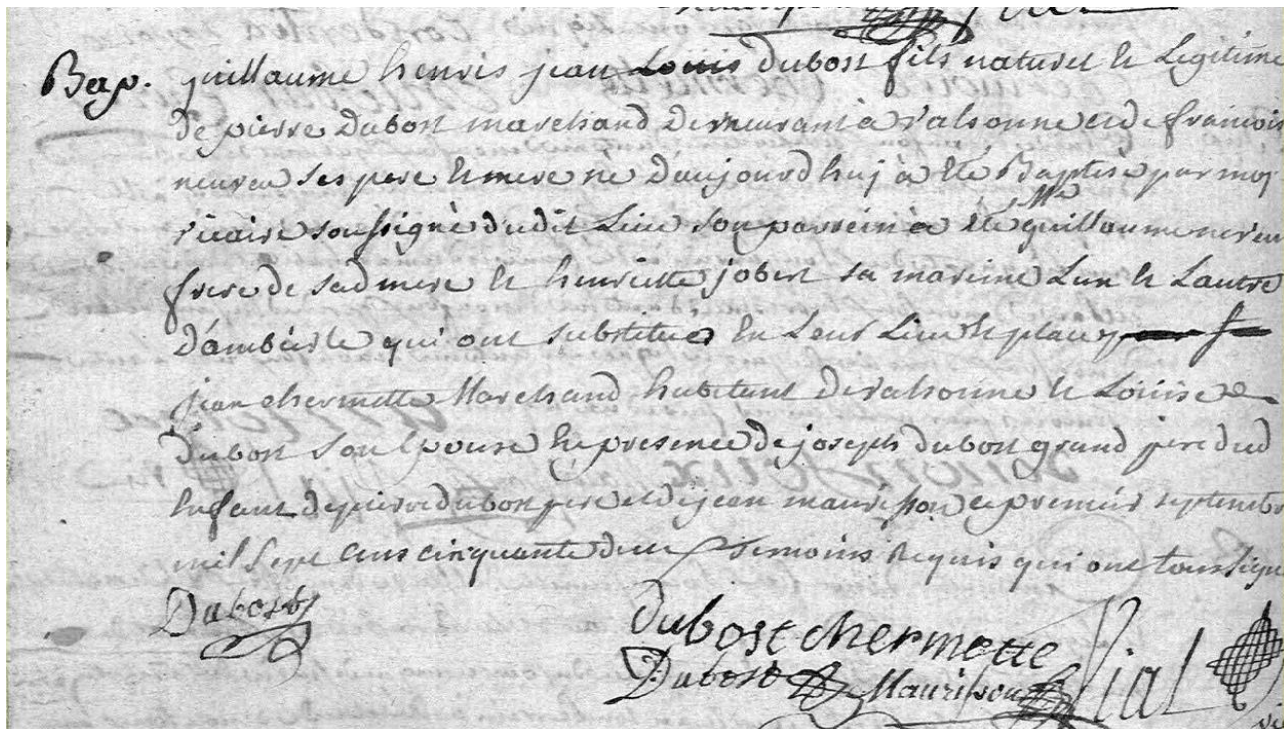 Bap. guillaume henris jean Louis Dubost fils naturel et Legitime
de pierre Dubost marchand demeurant à valsonne et de francois
neuveu ses pere et mere ne d'aujourd huj à été Baptisé par moy
vicaire soussigné dudit Lieu son parrein à été guillaume neveu
frere de sad mere et henriette jobert sa mareine Lun et Lautre
d'ambierle qui ont substitué En Leur Lieu et place
jean chermette Marchand habitant de valsonne et Louise
dubost son Epouse En presence de joseph dubost grand pere dud
Enfant de pierre dubost pere et de jean maurisson ce premier septembre
mil Sept Cens cinquante deux temoins Requis qui ont tous signé
Dubost
dubost chermette
Dubost Maurisson Vial